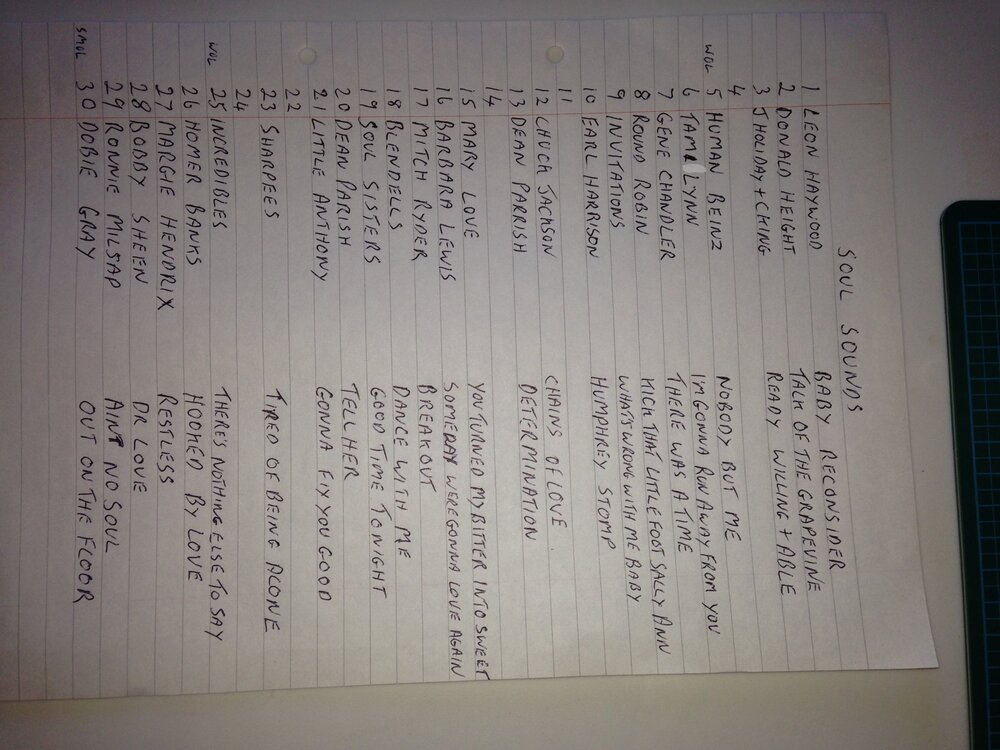 SOUL SOUNDS
1 LEON HAYWOOD BABY RECONSIDER
2 DONALD HEIGHT TALK OF THE GRAPEVINE
3 J HOLIDAY + C KING READY WILLING + ABLE
4
WOL 5 HUMAN BEINZ NOBODY BUT ME
6 TAMI LYNN I'M GONNA RUN AWAY FROM YOU
7 GENE CHANDLER THERE WAS A TIME
8 ROUND ROBIN KICK THAT LITTLE FOOT SALLY ANN
9 INVITATIONS WHAT'S WRONG WITH ME BABY
10 EARL HARRISON HUMPHREY STOMP
11
12 CHUCK JACKSON CHAINS OF LOVE.
13 DEAN PARRISH DETERMINATION
14
15 MARY LOVE YOU TURNED MY BITTER INTO SWEET
16 BARBARA LEWIS SOMEDAY WERE GONNA LOVE AGAIN
17 MITCH RYDER BREAKOUT
18 BLENDELLS DANCE WITH ME
19 SOUL SISTERS GOOD TIME TONIGHT
20 DEAN PARISH TELL HER
21 LITTLE ANTHONY GONNA FIX YOU GOOD
22
23 SHARPEES TIRED OF BEING ALONE
24
WOL 25 INCREDIBLES THERE'S NOTHING ELSE TO SAY
26 HOMER BANKS HOOKED BY LOVE
27 MARGIE HENDRIX RESTLESS
28 BOBBY SHEEN DR LOVE
29 RONNIE MILSAP AINT NO SOUL
SMOL 30 DOBIE GRAY OUT ON THE FLOOR